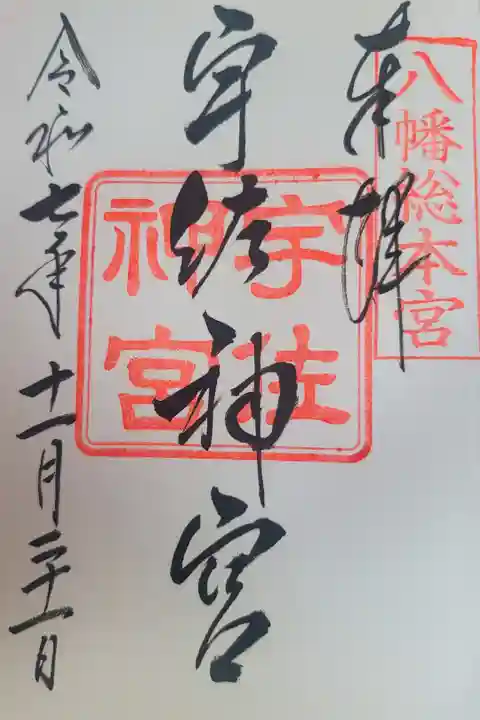 八幡総本宮
奉拝
宇佐神宮
宇佐神宮
令和七年十一月二十一日